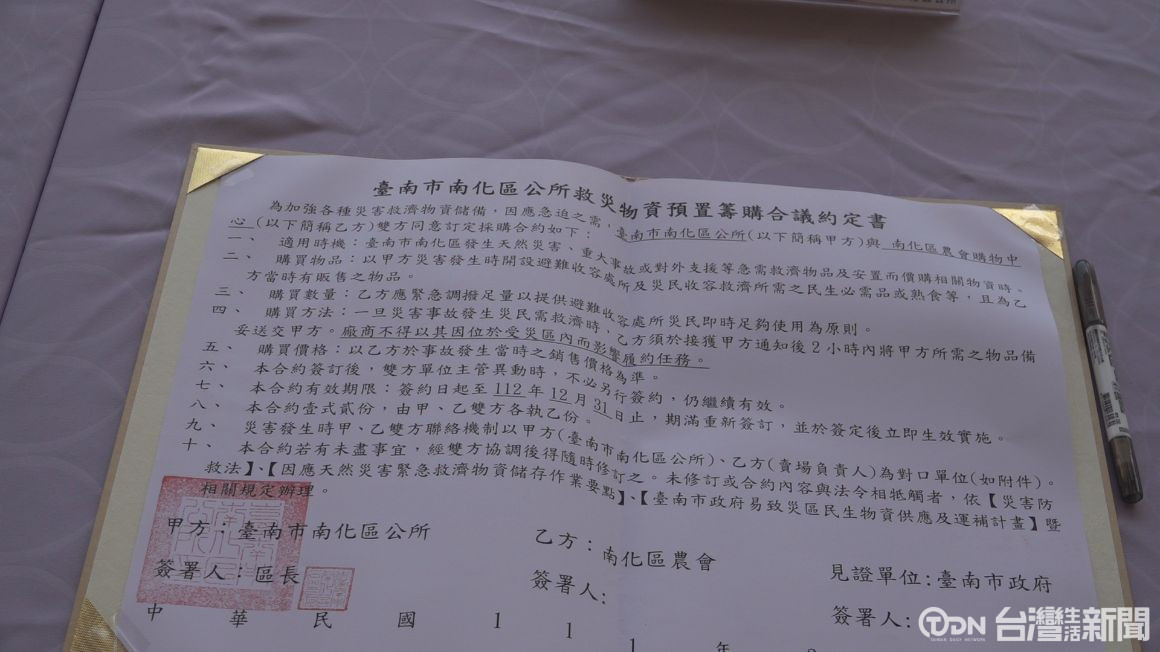 臺南市南化區公所救災物資預置籌購合議約定書
為加強各種災害救濟物資儲備，因應急迫之需，臺南市南化區公所(以下簡稱甲方)與 南化區農會購物中
心 (以下簡稱乙方)雙方同意訂定採購合約如下：
一、 適用時機：臺南市南化區發生天然災害、重大事故或對外支援等急需救濟物品及安置而價購相關物資時。
二、 購買物品：以甲方災害發生時開設避難收容處所及災民收容救濟所需之民生必需品或熟食等，且為乙
方當時有販售之物品。
三、 購買數量：乙方應緊急調撥足量以提供避難收容處所災民即時足夠使用為原則。
四、 購買方法：一旦災害事故發生災民需救濟時，乙方須於接獲甲方通知後2小時內將甲方所需之物品備
妥送交甲方。廠商不得以其因位於受災區內而影響履約任務。
五、 購買價格：以乙方於事故發生當時之銷售價格為準。
六、 本合約簽訂後，雙方單位主管異動時，不必另行簽約，仍繼續有效。
七、 本合約有效期限：簽約日起至112年12月31日止，期滿重新簽訂，並於簽定後立即生效實施。
八、 本合約壹式貳份，由甲、乙雙方各執乙份。
九、 災害發生時甲、乙雙方聯絡機制以甲方(臺南市南化區公所)、乙方(賣場負責人)為對口單位(如附件)。
十、 本合約若有未盡事宜，經雙方協調後得隨時修訂之。未修訂或合約內容與法令相牴觸者，依【災害防
救法】、【因應天然災害緊急救濟物資儲存作業要點】、【臺南市政府易致災區民生物資供應及運補計畫】暨
相關規定辦理。
甲方：臺南市南化區公所
乙方：南化區農會
見證單位：臺南市政府
簽署人：區長
簽署人：
簽署人：
中 華 民 國 1 1 1 年
TDN 台灣生活新聞
TAIWAN DAILY NETWORK